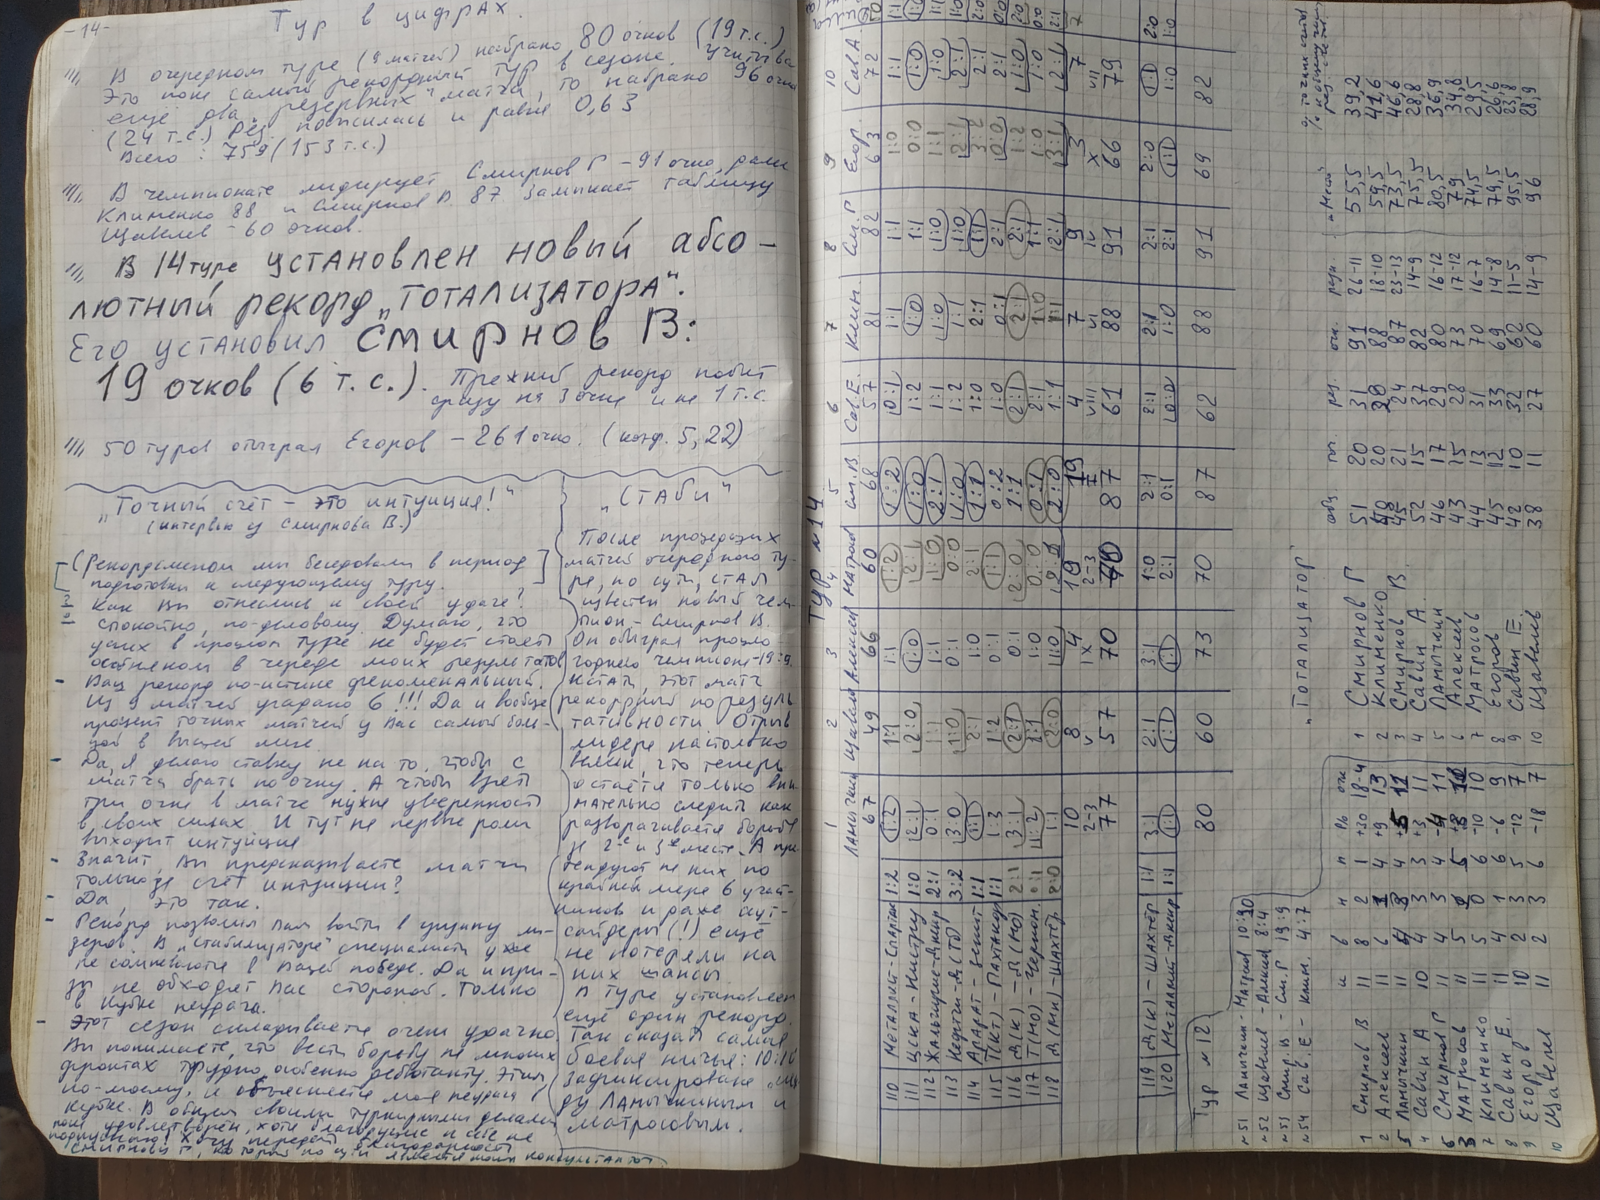 -14-
Тур в цифрах.
В очередном туре (9 матчей) набрано 80 очков (19 т.с.)
Это пока самый рекордный тур в сезоне. Учитывая
ещё два резервных матча, то набрано 96 очков
(24 т.с.) Рез. повысилась и равна 0,63
Всего: 759 (153 т.с.)
В чемпионате лидирует Смирнов Г - 91 очко, далее
Клименко 88 и Смирнов В 87 Замыкает таблицу
Щавелев - 60 очков.
В 14 туре установлен новый абсо-
лютный рекорд „Тотализатора".
Его установил Смирнов В:
19 очков (6 т.с.). Прежний рекорд побит
сразу на 3 очка и на 1 т.с.
50 туров отыграл Егоров - 261 очко. (коэф. 5,22)
„Точный счёт - это интуиция!"
(интервью у Смирнова В.)
(Рекордсменом мы беседовали в период
подготовки к следующему туру.
Как Вы отнеслись к своей удаче?
Спокойно, по-деловому. Думаю, что
успех в прошлом туре не будет стоять
особняком в череде моих результатов
- Ваш рекорд по-истине феноменальный.
Из 9 матчей угадано 6!!! Да и вообще
процент точных матчей у Вас самый боль-
шой в высшей лиге.
- Да, я делаю ставку не на то, чтобы с
матча брать по очку. А чтобы взять
три очка в матче нужна уверенность
в своих силах. И тут на первые роли
выходит интуиция
- Значит, Вы предсказываете матчи
только за счёт интуиции?
- Да, это так.
- Рекорд позволил Вам войти в группу ли-
деров. В „Стабилизаторе" специалисты уже
не сомневаются в Вашей победе. Да и при-
зы не обходят Вас стороной. Только
в Кубке неудача.
- Этот сезон складывается очень удачно
Вы понимаете, что вести борьбу на многих
фронтах трудно, особенно дебютанту. Этим
по-моему, и объясняется моя неудача
в Кубке. В общем своими турнирными делами
пока удовлетворён,
„СТАБИ"
После прошедших
матчей очередного ту-
ра, по сути, стал
известен новый чем-
пион - Смирнов В.
Он обыграл прошло
годнего чемпиона - 19:9.
Кстати, этот матч
рекордный по резуль
тативности Отрыв
лидера настолько
велик, что теперь
остаётся только вни
мательно следить как
разворачивается борьба
за 2е и 3е место. А пре
тендуют на них по
крайней мере 6 участ-
ников и даже аут-
сайдеры (!) ещё
не потеряли на
них шансы
В туре установлен
ещё один рекорд.
Так сказать самая
боевая ничья: 10:10
Зафиксирована ме
жду Ламычкиным и
Матросовым.
ТУР №14
1 2 3 4 5 6 7 8 9 10
Ламычкин Щавелев Алексеев Матросов См.В Сав.Е. Клим. См.Г Егор. Сав.А
67 49 66 60 68 57 81 82 63 72
110 Металлист-Спартак 1:2 1:2 1:1 1:1 1:2 1:2 0:1 1:1 1:1 1:0 1:1
111 ЦСКА-Кистяу 1:0 2:1 2:0 1:0 2:1 1:0 1:2 1:0 1:1 0:0 1:0
112 Жальгирис-Днепр 2:1 0:1 1:1 1:1 1:0 2:1 1:1 1:0 1:0 1:1 1:0
113 Нефтчи-Д(Тб) 3:2 3:0 1:0 0:1 0:0 1:0 1:2 1:1 1:0 2:1 2:1
114 Арарат-Зенит 1:1 1:1 2:1 1:0 2:1 1:1 1:0 2:1 1:1 3:2 2:1
115 Т(КТ)-Пахтакор 1:1 1:3 1:2 0:1 1:1 0:2 1:0 0:1 2:1 0:0 2:1
116 Д(К)-Д(Мо) 2:1 3:1 2:1 0:1 2:0 1:1 2:1 2:1 2:1 1:2 1:0
117 Т(Мо)-Черном. 0:1 1:2 1:1 1:0 0:0 0:1 2:1 1:0 1:1 1:0 1:0
118 Д(Мн)-Шахтёр 2:0 1:1 2:0 1:0 2:0 1:1 1:1 2:1 3:1 2:1
10 8 4 10 19 4 7 9 3 7
2-3 V IX 2-3 1 VIII VI IV X VII
77 57 70 70 87 61 88 91 66 79
119 Д(К)-Шахтёр 1:1 3:1 2:1 3:1 1:0 2:1 2:1 2:1 2:1 2:0 1:1
120 Металлист-Днепр 1:1 1:1 1:1 1:1 2:1 0:1 0:0 1:0 2:1 1:1 1:0
80 60 73 70 87 62 88 91 69 82
Тур №12
№51 Ламычкин - Матросов 10:10
№52 Щавелев - Алексеев 8:4
№53 Смир.В - См.Г 19:9
№54 Сав.Е - Клим. 4:7
и в н п РЬ очк
1 Смирнов В 11 8 2 1 +30 18-4
2 Алексеев 11 6 1 4 +9 13
Ламычкин 11
4 Савин А 10 4 3 3 +3 11
Смирнов Г 11 4 3 4 11
Матросов 11 5
7 Клименко 11 5 0 6 -10 10
8 Савин Е. 11 4 1 6 -6 9
9 Егоров 10 2 3 5 -12 7
10 Щавелев 11 2 3 6 -18 7
„Тотализатор"
общ пп рез. очк. разн. „Мяч" % точных счетов к общему числу результатов
1 Смирнов Г 51 20 31 91 26-11 55,5 39,2
2 Клименко 48 20 28 88 18-10 59,5 41,6
3 Смирнов В. 45 21 24 87 23-13 73,5 46,6
4 Савин А 52 15 37 82 14-9 75,5 28,8
5 Ламычкин 46 17 29 80 16-12 80,5 36,9
6 Алексеев 43 15 28 73 17-12 79 34,8
7 Матросов 44 13 31 70 16-7 74,5 29,5
8 Егоров 45 12 33 69 14-8 79,5 26,6
9 Савин Е. 42 10 32 62 11-5 95,5 23,8
10 Щавелев 38 11 27 60 14-9 96 28,9